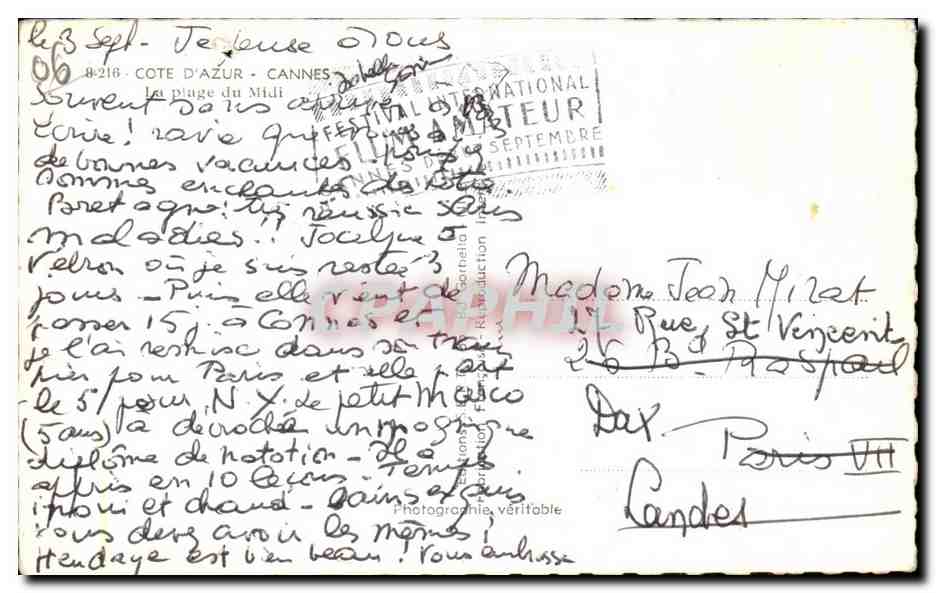 le 3 Sept - Je pense à vous
06
8-216 - COTE D'AZUR - CANNES
La plage du Midi
souvent sans
écrire! ravie que
de bonnes vacances.
sommes enchantés de
Bretagne! très réussie sans
maladies!! Jocelyne à
où je suis restée 3
jours - Puis elle vient de
passer 15 j. à Cannes et
je l'ai remise dans son train
hier pour Paris et elle part
le 5 pour N.Y. Le petit
(5 ans) a décroché un magnifique
diplôme de natation - Il a
appris en 10 leçons. Temps
inouï et chaud - bains exquis
vous devez avoir les mêmes!
Hendaye est bien beau! Vous embrasse
FESTIVAL INTERNATIONAL
FILM AMATEUR
CANNES SEPTEMBRE
Madame Jean Mirat
17 Rue St Vincent
26 Bd Raspail
Dax
Paris VII
Landes
Photographie véritable
CPAPHIL